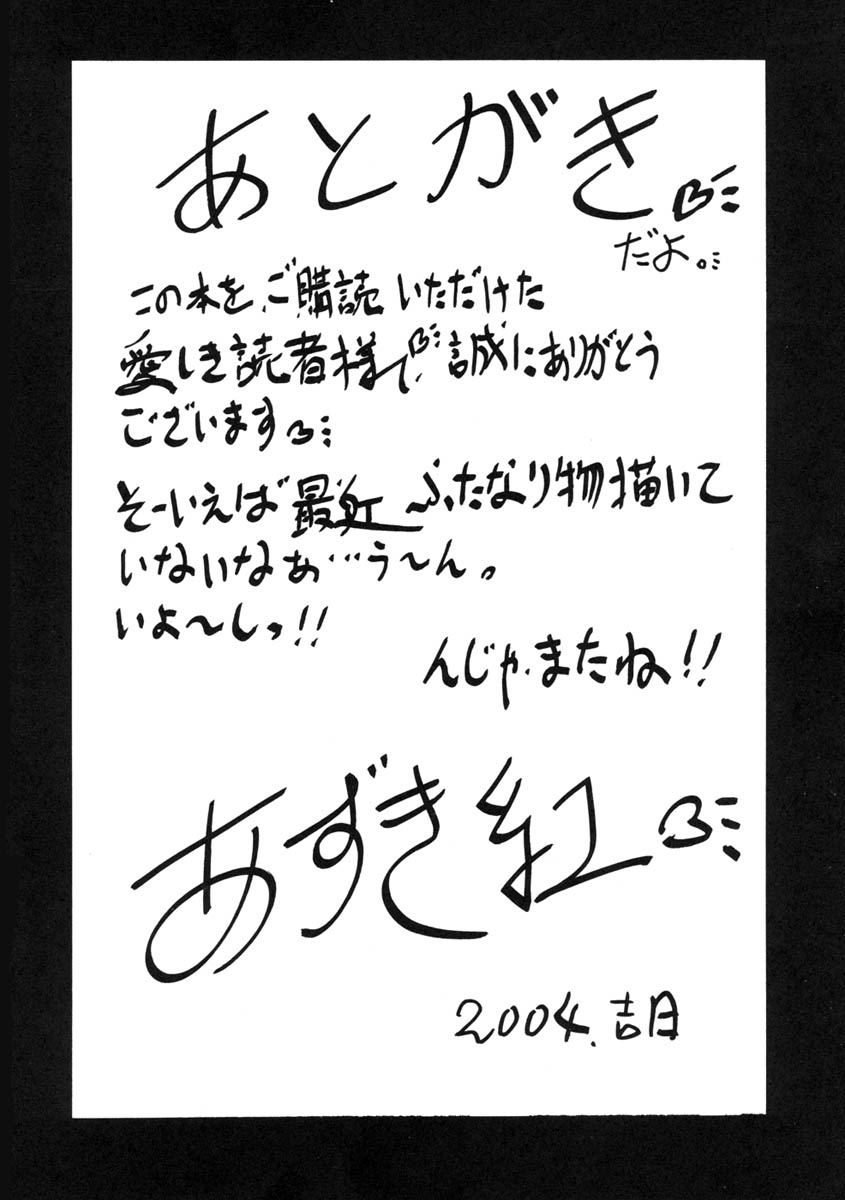 あとがき♡
だよ。
この本を、ご購読いただけた
愛しき読者様♡誠にありがとう
ございます♡
そーいえば最近ふたなり物描いて
いないなぁ…う～ん。
いよ～しっ!!
んじゃ、またね!!
あずき紅♡
2004.吉日